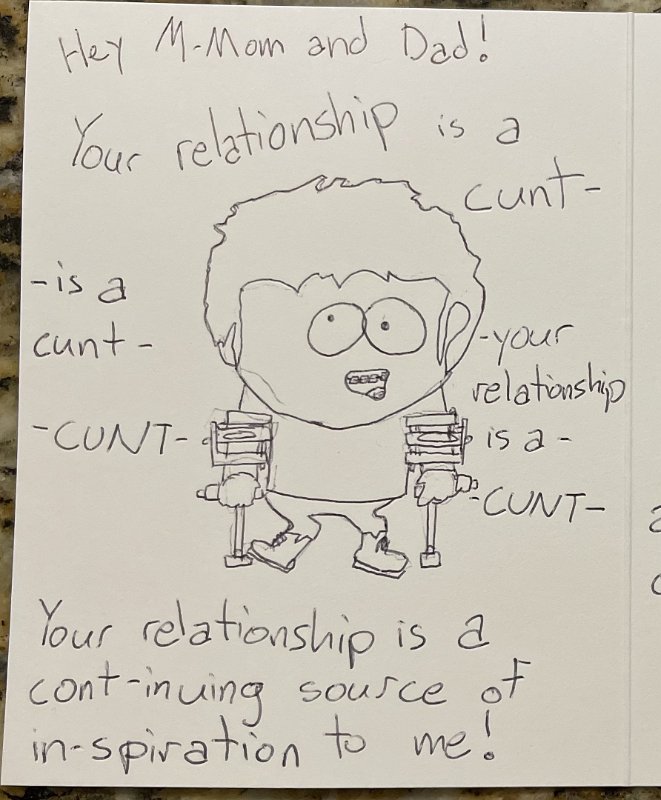 Hey M-Mom and Dad!
Your relationship is a
cunt-
-is a
cunt-
-your
relationship
is a-
-CUNT-
-CUNT-
Your relationship is a
cont-inuing source of
in-spiration to me!